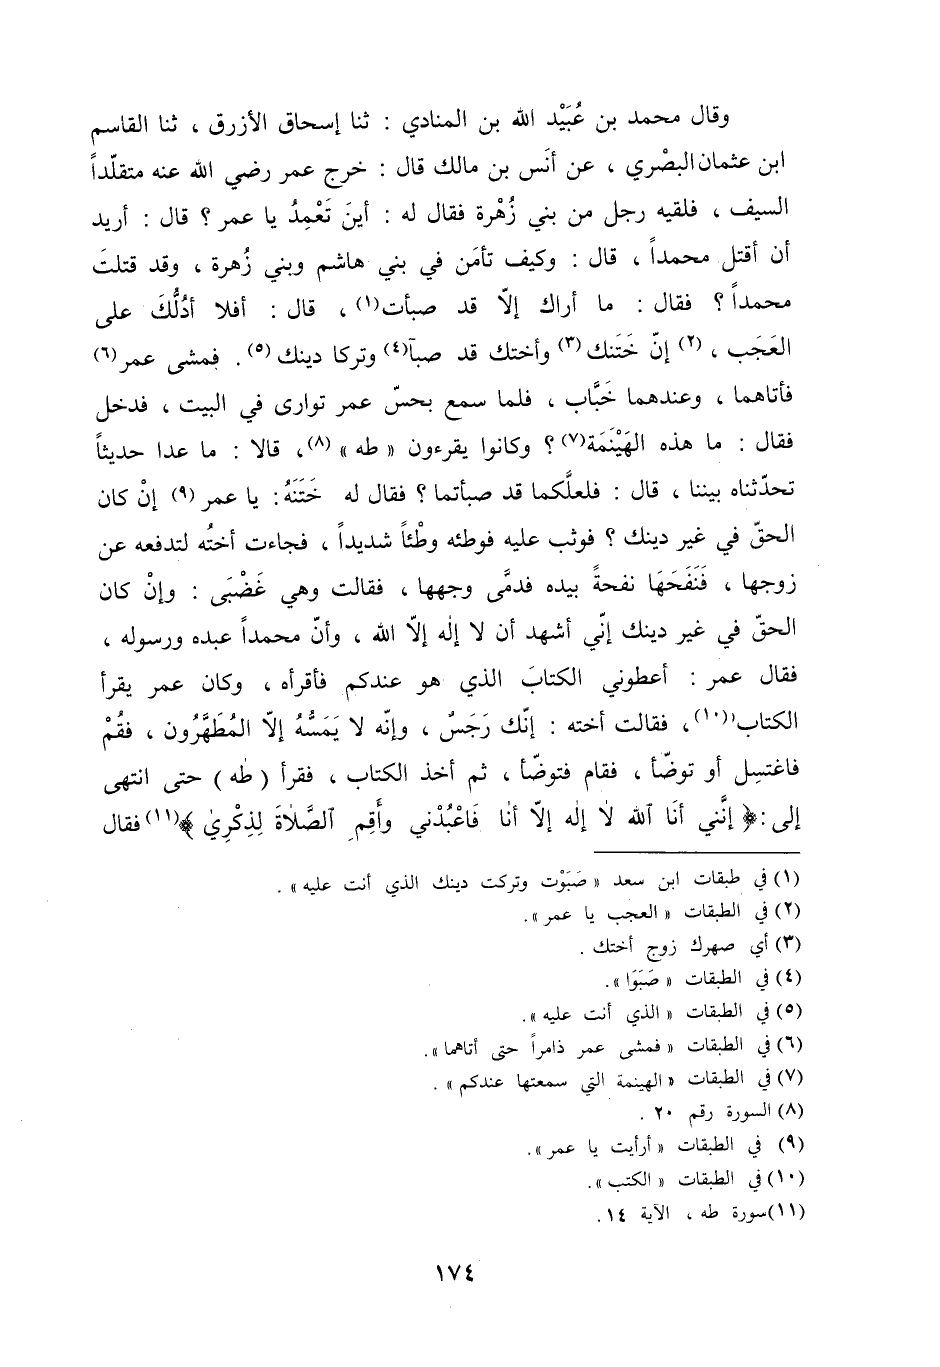 وقال محمد بن عُبَيْد الله بن المنادي : ثنا إسحاق الأزرق ، ثنا القاسم
ابن عثمان البصْري ، عن أنَس بن مالك قال : خرج عمر رضي الله عنه متقلّداً
السيف ، فلقيه رجل من بني زُهْرة فقال له : أينَ تَعْمِدُ يا عمر ؟ قال : أريد
أن أقتل محمداً ، قال : وكيف تأمَن في بني هاشم وبني زُهرة ، وقد قتلتَ
محمداً ؟ فقال : ما أراك إلّا قد صبأت(١) ، قال : أفلا أدُلُّكَ على
العَجَب ، (٢) إنّ خَتَنك (٣) وأختك قد صبآ(٤) وتركا دينك (٥) . فمشى عمر (٦)
فأتاهما ، وعندهما خَبَّاب ، فلما سمع بحسّ عمر توارى في البيت ، فدخل
فقال : ما هذه الهَيْنَمَة(٧) ؟ وكانوا يقرءون « طه » (٨)، قالا : ما عدا حديثاً
تحدّثناه بيننا ، قال : فلعلَّكما قد صبأتما ؟ فقال له خَتَنَهُ : يا عمر (٩) إنْ كان
الحقّ في غير دينك ؟ فوثب عليه فوطئه وطْئاً شديداً ، فجاءت أختُه لتدفعه عن
زوجها ، فَنَفَحَهَا نفحةً بيده فدمَّى وجهها ، فقالت وهي غَضْبَى : وإنْ كان
الحقّ في غير دينك إنّي أشهد أن لا إلٰه إلّا الله ، وأنّ محمداً عبده ورسوله ،
فقال عمر : أعطوني الكتابَ الذي هو عندكم فأقرأه ، وكان عمر يقرأ
الكتاب(١٠) ، فقالت أخته : إنّك رَجَسٌ ، وإنّه لا يَمَسُّهُ إلّا المُطَهَّرُون ، فقُمْ
فاغتسِل أو توضّأ ، فقام فتوضّأ ، ثم أخذ الكتاب ، فقرأ ( طٰه ) حتى انتهى
إلى : ﴿ إنَّني أنَا ٱلله لاٰ إلٰه إلّا أنا فَاعْبُدْني وأَقِمِ ٱلصَّلاٰةَ لِذِكْرِي ﴾(١١) فقال
(١) في طبقات ابن سعد « صَبَوْت وتركت دينك الذي أنت عليه » .
(٢) في الطبقات « العجب يا عمر » .
(٣) أي صهرك زوج أختك .
(٤) في الطبقات « صَبَوَا » .
(٥) في الطبقات « الذي أنت عليه » .
(٦) في الطبقات « فمشى عمر ذامراً حتى أتاهما » .
(٧) في الطبقات « الهينمة التي سمعتها عندكم » .
(٨) السورة رقم ٢٠ .
(٩) في الطبقات « أرأيت يا عمر » .
(١٠) في الطبقات « الكتب » .
(١١) سورة طه ، الآية ١٤ .
١٧٤